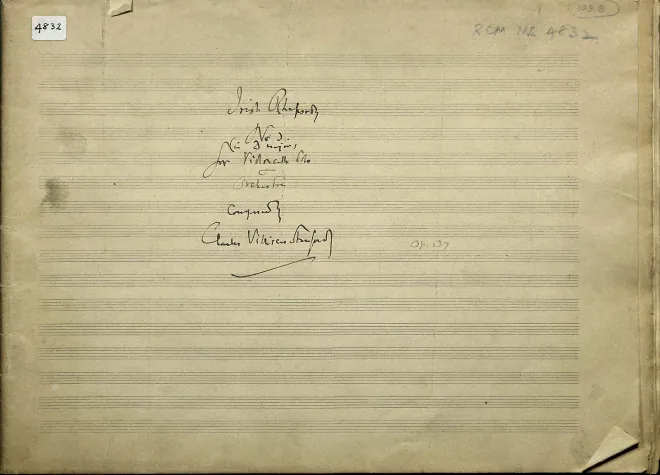 4832
1098
RCM MS. 4832
Irish Rhapsody
No 3
(in D major)
for Violoncello Solo
&
Orchestra
Composed by
Charles Villiers Stanford
Op. 137